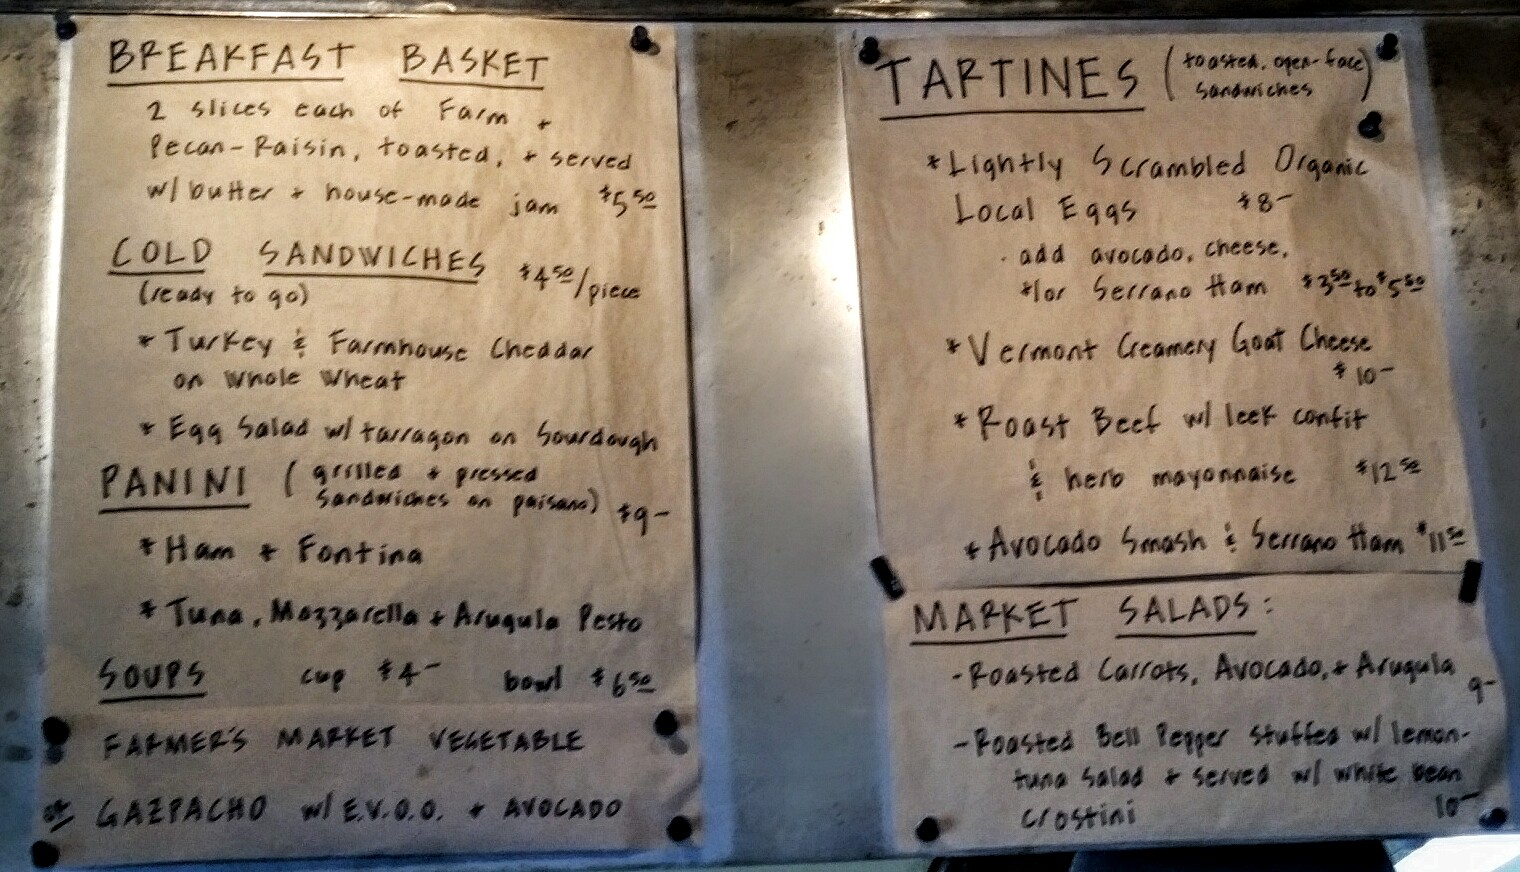 BREAKFAST BASKET
2 slices each of Farm +
Pecan-Raisin, toasted, + served
w/ butter + house-made jam $5 50
COLD SANDWICHES $4 50/piece
(ready to go)
* Turkey & Farmhouse Cheddar
on Whole Wheat
* Egg Salad w/ tarragon on Sourdough
PANINI (grilled + pressed
sandwiches on paisano) $9-
* Ham + Fontina
* Tuna, Mozzarella + Arugula Pesto
SOUPS cup $4- bowl $6 50
FARMER'S MARKET VEGETABLE
or GAZPACHO w/ E.V.O.O. + AVOCADO
TARTINES (toasted, open-face
sandwiches)
* Lightly Scrambled Organic
Local Eggs $8-
· add avocado, cheese,
+/or Serrano Ham $3 50 to $5 50
* Vermont Creamery Goat Cheese
$10-
* Roast Beef w/ leek confit
& herb mayonnaise $12 50
* Avocado Smash & Serrano Ham $11 50
MARKET SALADS:
- Roasted Carrots, Avocado, + Arugula
9-
- Roasted Bell Pepper stuffed w/ lemon-
tuna salad + served w/ white bean
crostini 10-